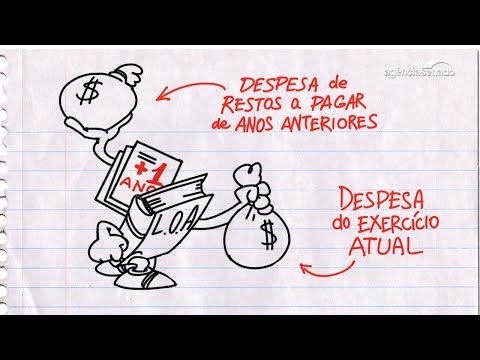 agênciasenado
$
DESPESA de
RESTOS a PAGAR
de ANOS ANTERIORES
+1
ANO
L.O.A
$
DESPESA
do EXERCÍCIO
ATUAL